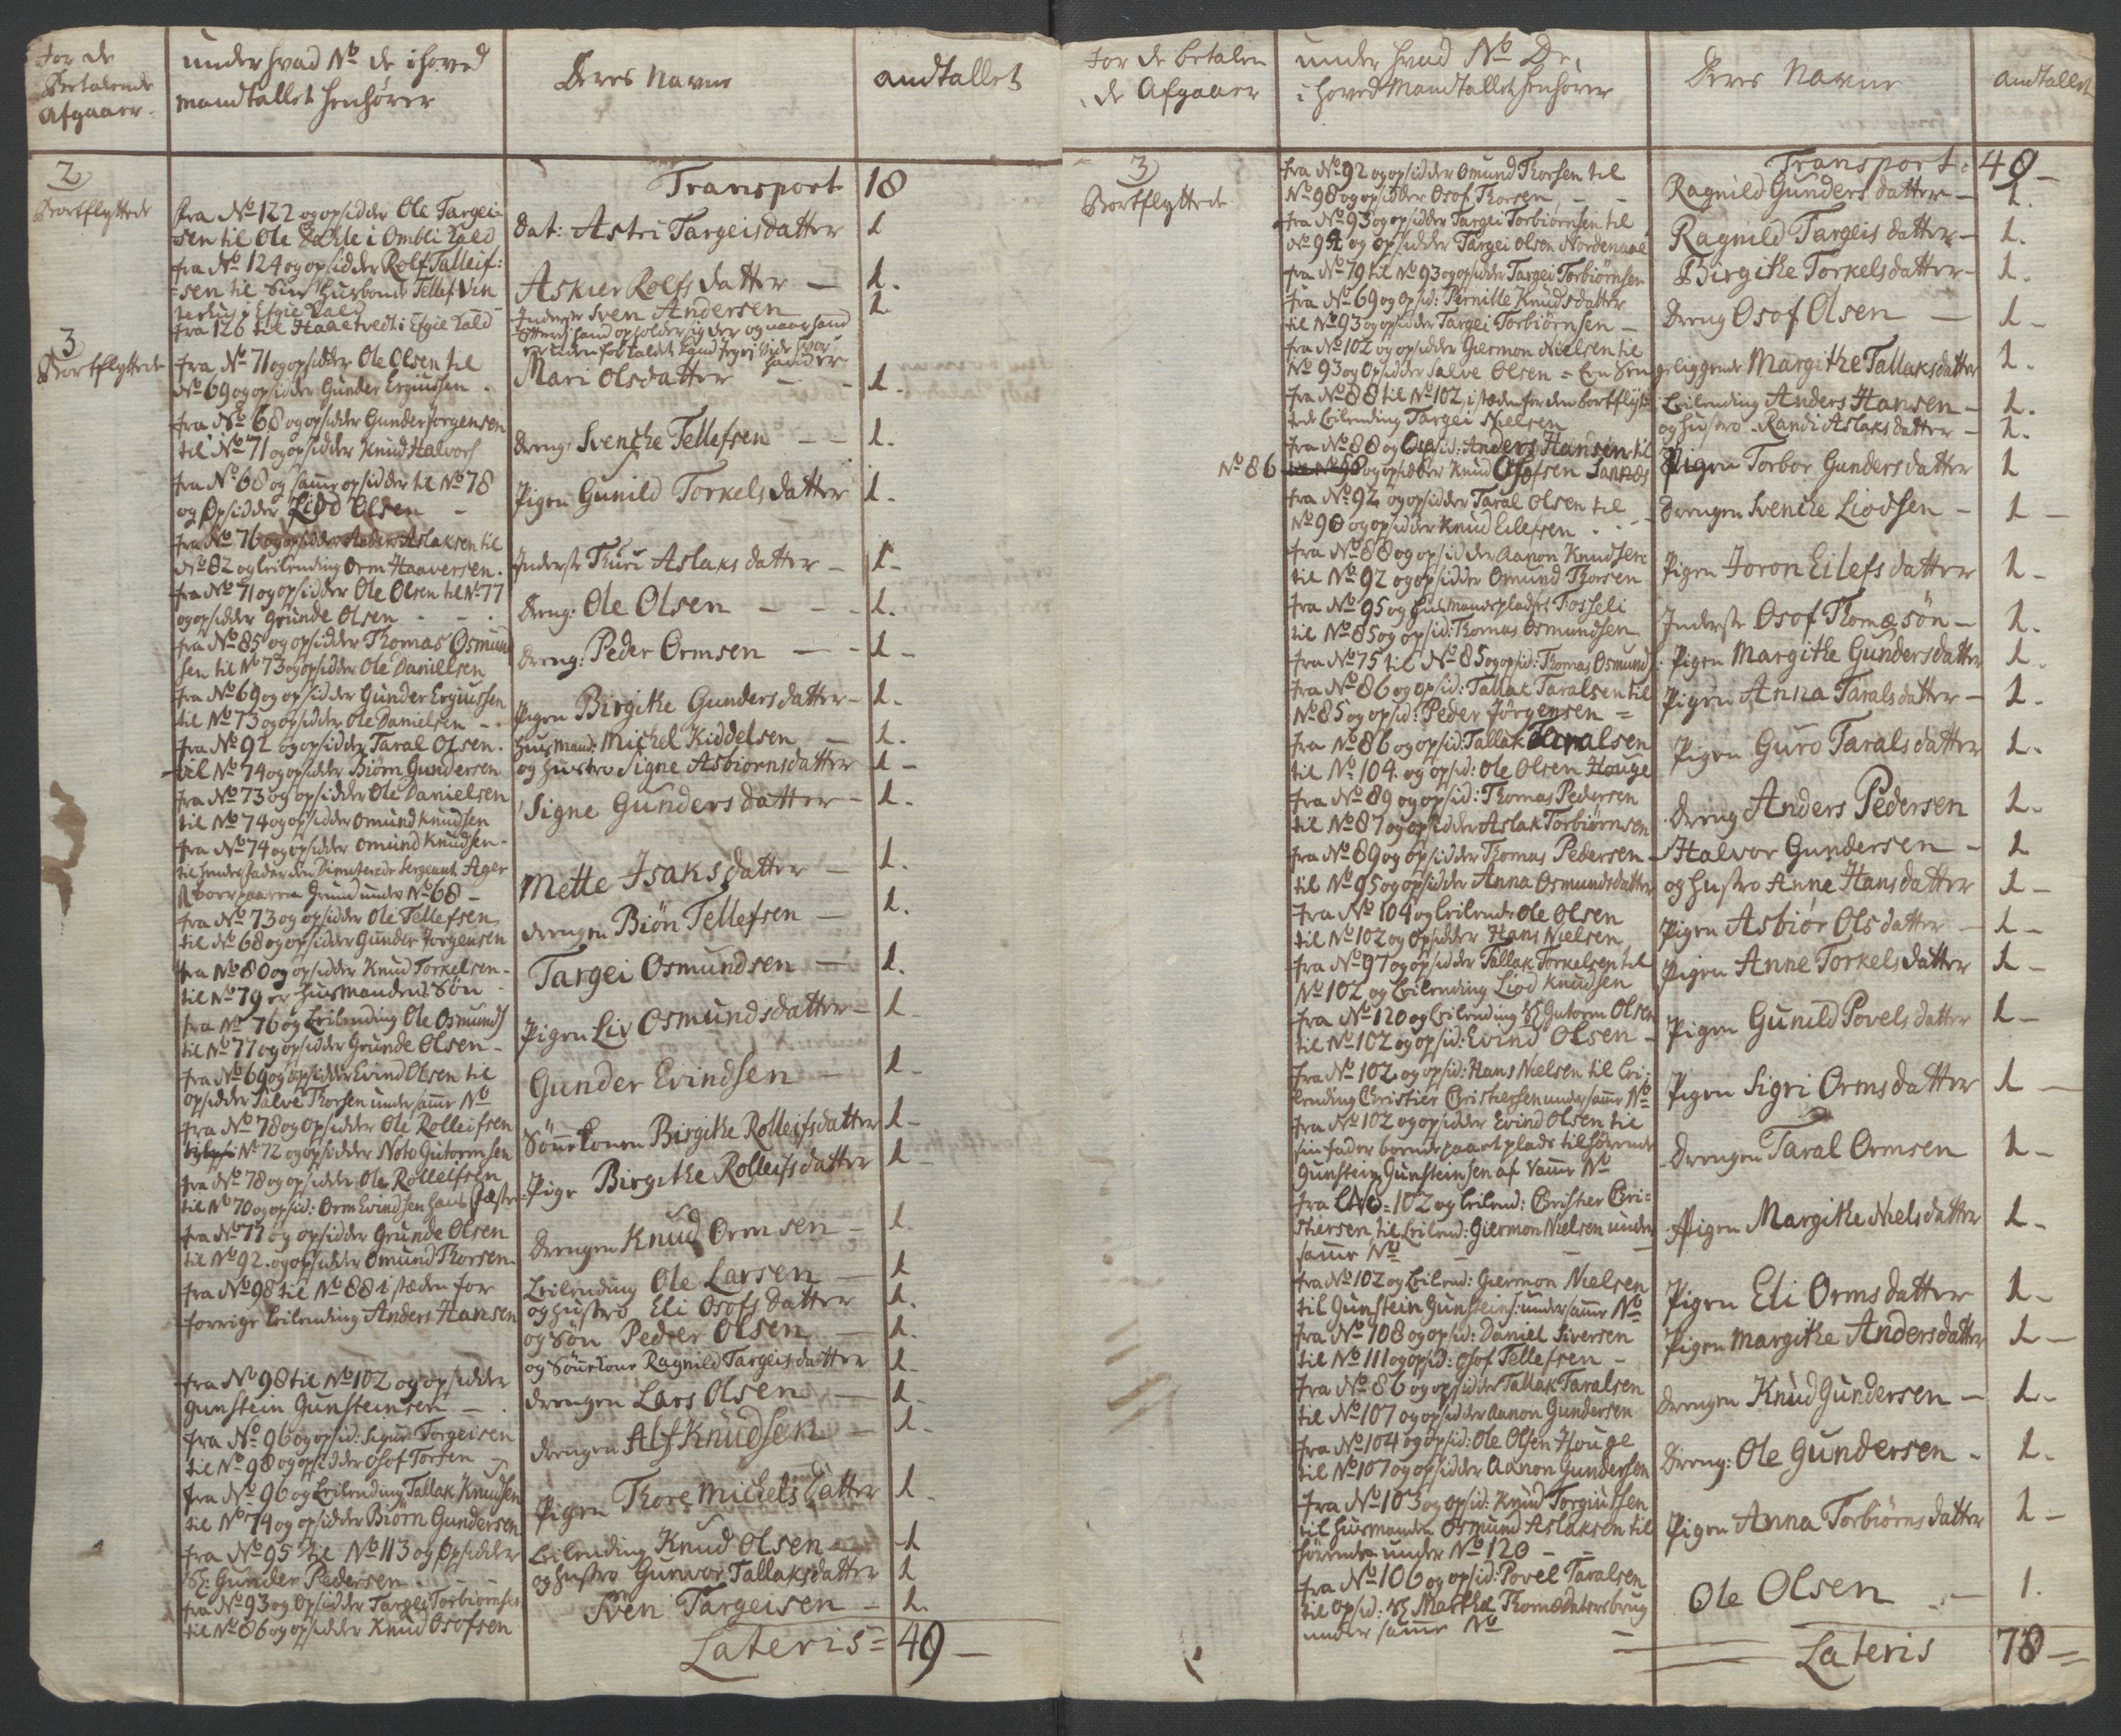 For de
Betalende
Afgaaer
under hvad No de i hoved
mandtallet henhører
Deres Navne
andtallet
2
Bortflyttede
Transport 18
fra No 122 og opsidder Ole Targei-
sen til Ole i Ombli Kald
Dat: Astri Targeisdatter 1
fra No 124 og opsidder Rolf Talleif:
sen til Sin Husbonde Tellef Vin
terhus i Efgie Kald
Askier Rolfsdatter — 1.
fra 126 til Haaetvedt i Efgie Kald
Inderste Sven Andersen 1.
hand opholder sig der og naar hand
3
Bortflyttede
fra No 71 og opsidder Ole Olsen til
No 69 og opsidder Gunder Ergiussen
Mari Olsdatter — 1.
fra No 68 og opsidder Gunder Jorgensen
til No 71 og opsidder Knud Halvors
dreng: Svenche Tellefsen — 1.
fra No 68 og samme opsidder til No 78
og Opsidder Liød Olsen
Pigen Gunild Torkelsdatter 1.
fra No 76 og opsidder Anders Aslaksen til
No 82 og leilending Orm Haaversen.
Inderste Thuri Aslaksdatter — 1-
fra No 71 og opsidder Ole Olsen til No 77
og opsidder Grunde Olsen
Dreng: Ole Olsen — 1.
fra No 85 og opsidder Thomas Osmun
sen til No 73 og opsidder Ole Danielsen
Dreng: Peder Ormsen — 1-
fra No 69 og opsidder Gunder Ergiussen
til No 73 og opsidder Ole Danielsen
Pigen Birgithe Gundersdatter — 1.
fra No 92 og opsidder Taral Olsen.
til No 74 og opsidder Biørn Gundersen
Husmand: Michel Kiddelsen — 1.
og Hustro Signe Asbiørnsdatter 1-
fra No 73 og opsidder Ole Danielsen
til No 74 og opsidder Omund Knudsen
Signe Gundersdatter — 1.
fra No 74 og opsidder Omund Knudsen-
til hendes fader den Dimiterede Sergeant Ager
boer paa een Grund under No 68 —
Mette Isaksdatter — 1.
fra No 73 og opsidder Ole Tellefsen
til No 68 og opsidder Gunder Jorgensen
drengen Biøn Tellefsen — 1.
fra No 80 og opsidder Knud Torkelsen-
til No 79 er Husmandens Søn
Targei Osmundsen — 1.
fra No 76 og Leilending Ole Osmunds
til No 77 og opsidder Grunde Olsen-
Pigen Liv Osmundsdatter — 1
fra No 69 og opsidder Evind Olsen til
opsidder Salve Thorsen under samme No
Gunder Evindsen — 1-
fra No 78 og opsidder Ole Rolleifsen
No 72 og opsidder Noto Gutormsen
Sønnekonen Birgithe Rolleifsdatter 1-
fra No 78 og opsidder Ole Rolleifsen
til No 70 og opsid: Orm Evindsen hans fæste
Pige Birgithe Rolleifsdatter 1
fra No 77 og opsidder Grunde Olsen
til No 92. og opsidder Omund Thorsen-
Drengen Knud Ormsen — 1.
fra No 98 til No 88 i stæden for
forrige Leilending Anders Hansen
Leilending Ole Larsen — 1
og Hustro Eli Osofsdatter 1.
og Søn Peder Olsen — 1.
og Sønnekone Ragnild Targeisdatter 1-
fra No 98 til No 102 og opsidder
Gunstein Gunsteinsen
drengen Lars Olsen — 1-
fra No 96 og opsid: Sigur Torgeisen
til No 98 og opsidder Osof Torsen
drengen Alf Knudsen — 1.
fra No 96 og Leilending Tallak Knudsen
til No 74 og opsidder Biørn Gundersen
Pigen Thore Michelsdatter 1
fra No 95 til No 113 og Opsidder
Gunder Pedersen
Leilending Knud Olsen — 1
og Hustro Gunvor Tallaksdatter 1
fra No 93 og Opsidder Targei Torbiørnsen
til No 86 og opsidder Knud Osofsen
Sven Targeisen — 1.
Lateris = 49 —
For de betalen
de Afgaaer
under hvad No De
i hoved Mandtallet henhører
Deres Navne
andtallet
3
Bortflyttede
Transport: 49-
fra No 92 og opsidder Omund Thorsen til
No 98 og opsidder Osof Thorsen
Ragnild Gundersdatter — 1.
fra No 93 og opsidder Targei Torbiørnsen til
No 94 og opsidder Targei Olsen Nordenaae
Ragnild Targeisdatter — 1.
fra No 79 til No 93 og opsidder Targei Torbiørnsen
Birgithe Torkelsdatter — 1.
fra No 69 og opsid: Pernille Knudsdatter
til No 93 og opsidder Targei Torbiørnsen —
Dreng Osof Olsen — 1-
fra No 102 og opsidder Giermon Nielsen til
No 93 og Opsidder Salve Olsen = Een Sen
geliggende Margithe Tallaksdatter 1.
fra No 88 til No 102, i stæden for den bortflyt
tede Leilending Targei Nielsen
Leilending Anders Hansen — 1.
og Hustro Randi Aslaksdatter — 1.
fra No 88 og Opsid: Anders Hansen til
No 86 og opsidder Knud Osofsen Sannæs
Pigen Torbor Gundersdatter 1
fra No 92 og opsidder Taral Olsen til
No 90 og opsidder Knud Eilefsen
Drengen Svenche Liodsen — 1 —
fra No 88 og opsidder Aanon Knudsen
til No 92 og opsidder Omund Thorsen
Pigen Joron Eilefsdatter 1-
fra No 95 og Husmandspladset Fosseli
til No 85 og opsid: Thomas Osmundsen
Inderste Osof Thomæsøn — 1.
fra No 75 til No 85 og opsid: Thomas Osmund
Pigen Margithe Gundersdatter 1.
fra No 86 og opsid: Tallak Taralsen til
No 85 og opsid: Peder Jørgensen =
Pigen Anna Taralsdatter — 1.
fra No 86 og opsid: Tallak Taralsen
til No 104. og opsid: Ole Olsen Houge
Pigen Guro Taralsdatter 1.
fra No 89 og opsid: Thomas Pedersen
til No 87 og opsidder Aslak Torbiørnsen
dreng Anders Pedersen 1.
fra No 89 og opsidder Thomas Pedersen —
til No 95 og opsidder Anna Osmundsdatter
Halvor Gundersen — 1
og Hustro Anne Hansdatter 1-
fra No 104 og Leilend: Ole Olsen
til No 102 og Opsidder Hans Nielsen
Pigen Asbiør Olsdatter — 1-
fra No 97 og opsidder Tallak Torkelsen til
No 102 og Leilending Liød Knudsen
Pigen Anne Torkelsdatter 1-
fra No 120 og Leilending Gutorm Olsen
til No 102 og opsid: Evind Olsen —
Pigen Gunild Povelsdatter 1-
fra No 102 og opsid: Hans Nielsen til Lei-
lending Christier Christiersen under samme No
Pigen Sigri Ormsdatter 1 —
fra No 102 og opsidder Evind Olsen til
sin fader boende paa et plads tilhørende
Gunstein Gunsteinsen af samme No
Drengen Taral Ormsen 1-
fra No 102 og Leilend: Christier Chri-
stiersen, til Leilend: Giermon Nielsen under
samme No
Pigen Margithe Nielsdatter 1-
fra No 102 og Leilend: Giermon Nielsen
til Gunstein Gunsteins: under samme No
Pigen Eli Ormsdatter 1-
fra No 108 og opsid: Daniel Siversen
til No 111 og opsid: Osof Tellefsen —
Pigen Margithe Andersdatter 1 —
fra No 86 og opsidder Tallak Taralsen
til No 107 og opsidder Aanon Gundersen
Drengen Knud Gundersen — 1-
fra No 104 og opsid: Ole Olsen Houge
til No 107 og opsidder Aanon Gundersen
Dreng: Ole Gundersen — 1.
fra No 103 og opsid: Knud Torgiusen
til Husmanden Osmund Aslaksen til
hørende under No 120 —
Pigen Anna Torbiørnsdatter 1-
fra No 106 og opsid: Povel Taralsen
til Opsid: Marthe Thomædatersbrug
under samme No
Ole Olsen — 1.
Lateris 78 =